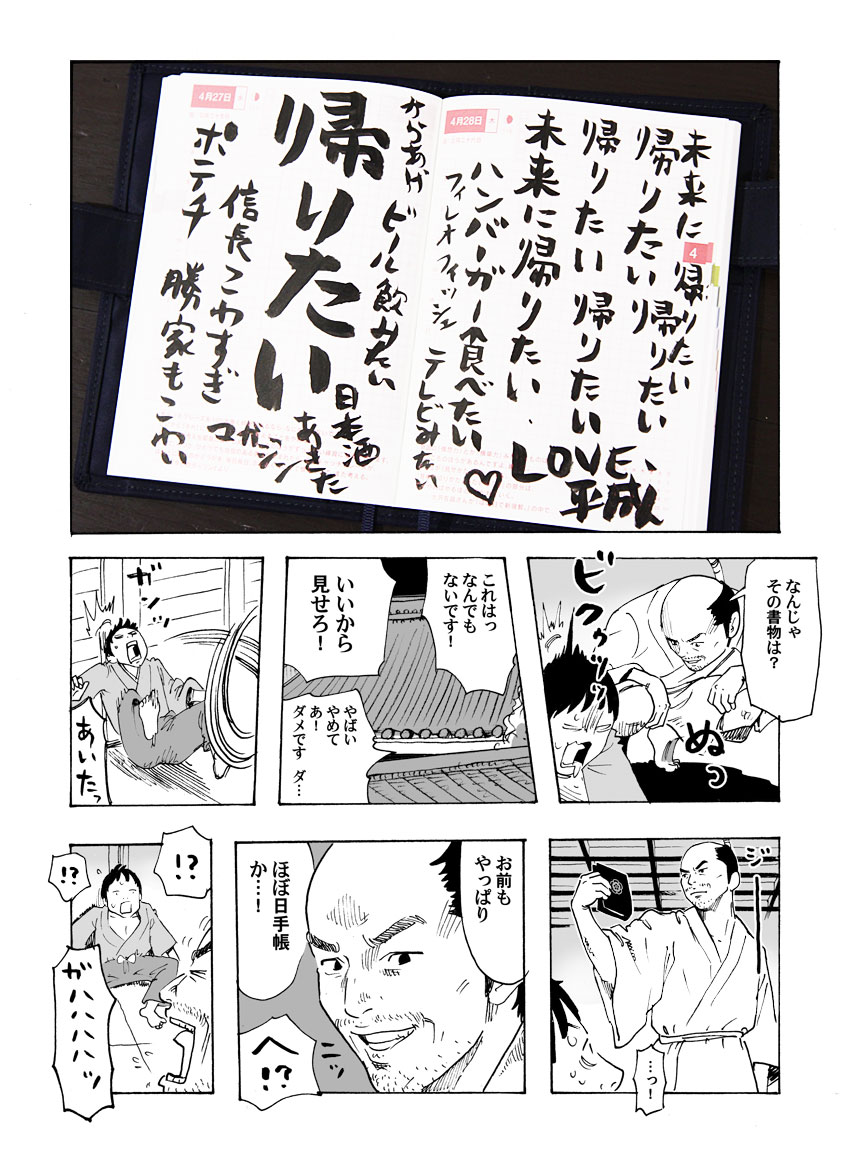 未来に帰りたい
帰りたい帰りたい
帰りたい帰りたい
未来に帰りたい
LOVE、
平成
ハンバーガー食べたい
フィレオフィッシュ
テレビみたい
♡
4月28日
木
4
からあげ
ビール飲みたい
帰りたい
日本酒
あきた
マガジン
信長こわすぎ
ポテチ
勝家もこわい
4月27日
水
なんじゃ
その書物は?
ビクゥッッ
ぬっ
これはっ
なんでも
ないです!
いいから
見せろ!
やばい
やめて
あ!
ダメです ダ…
ガンッ
あいたっ
ジーーー
…っ!
お前も
やっぱり
ほぼ日手帳
か…!
ニッ
へ!?
!?
!?
ガハハハハッ